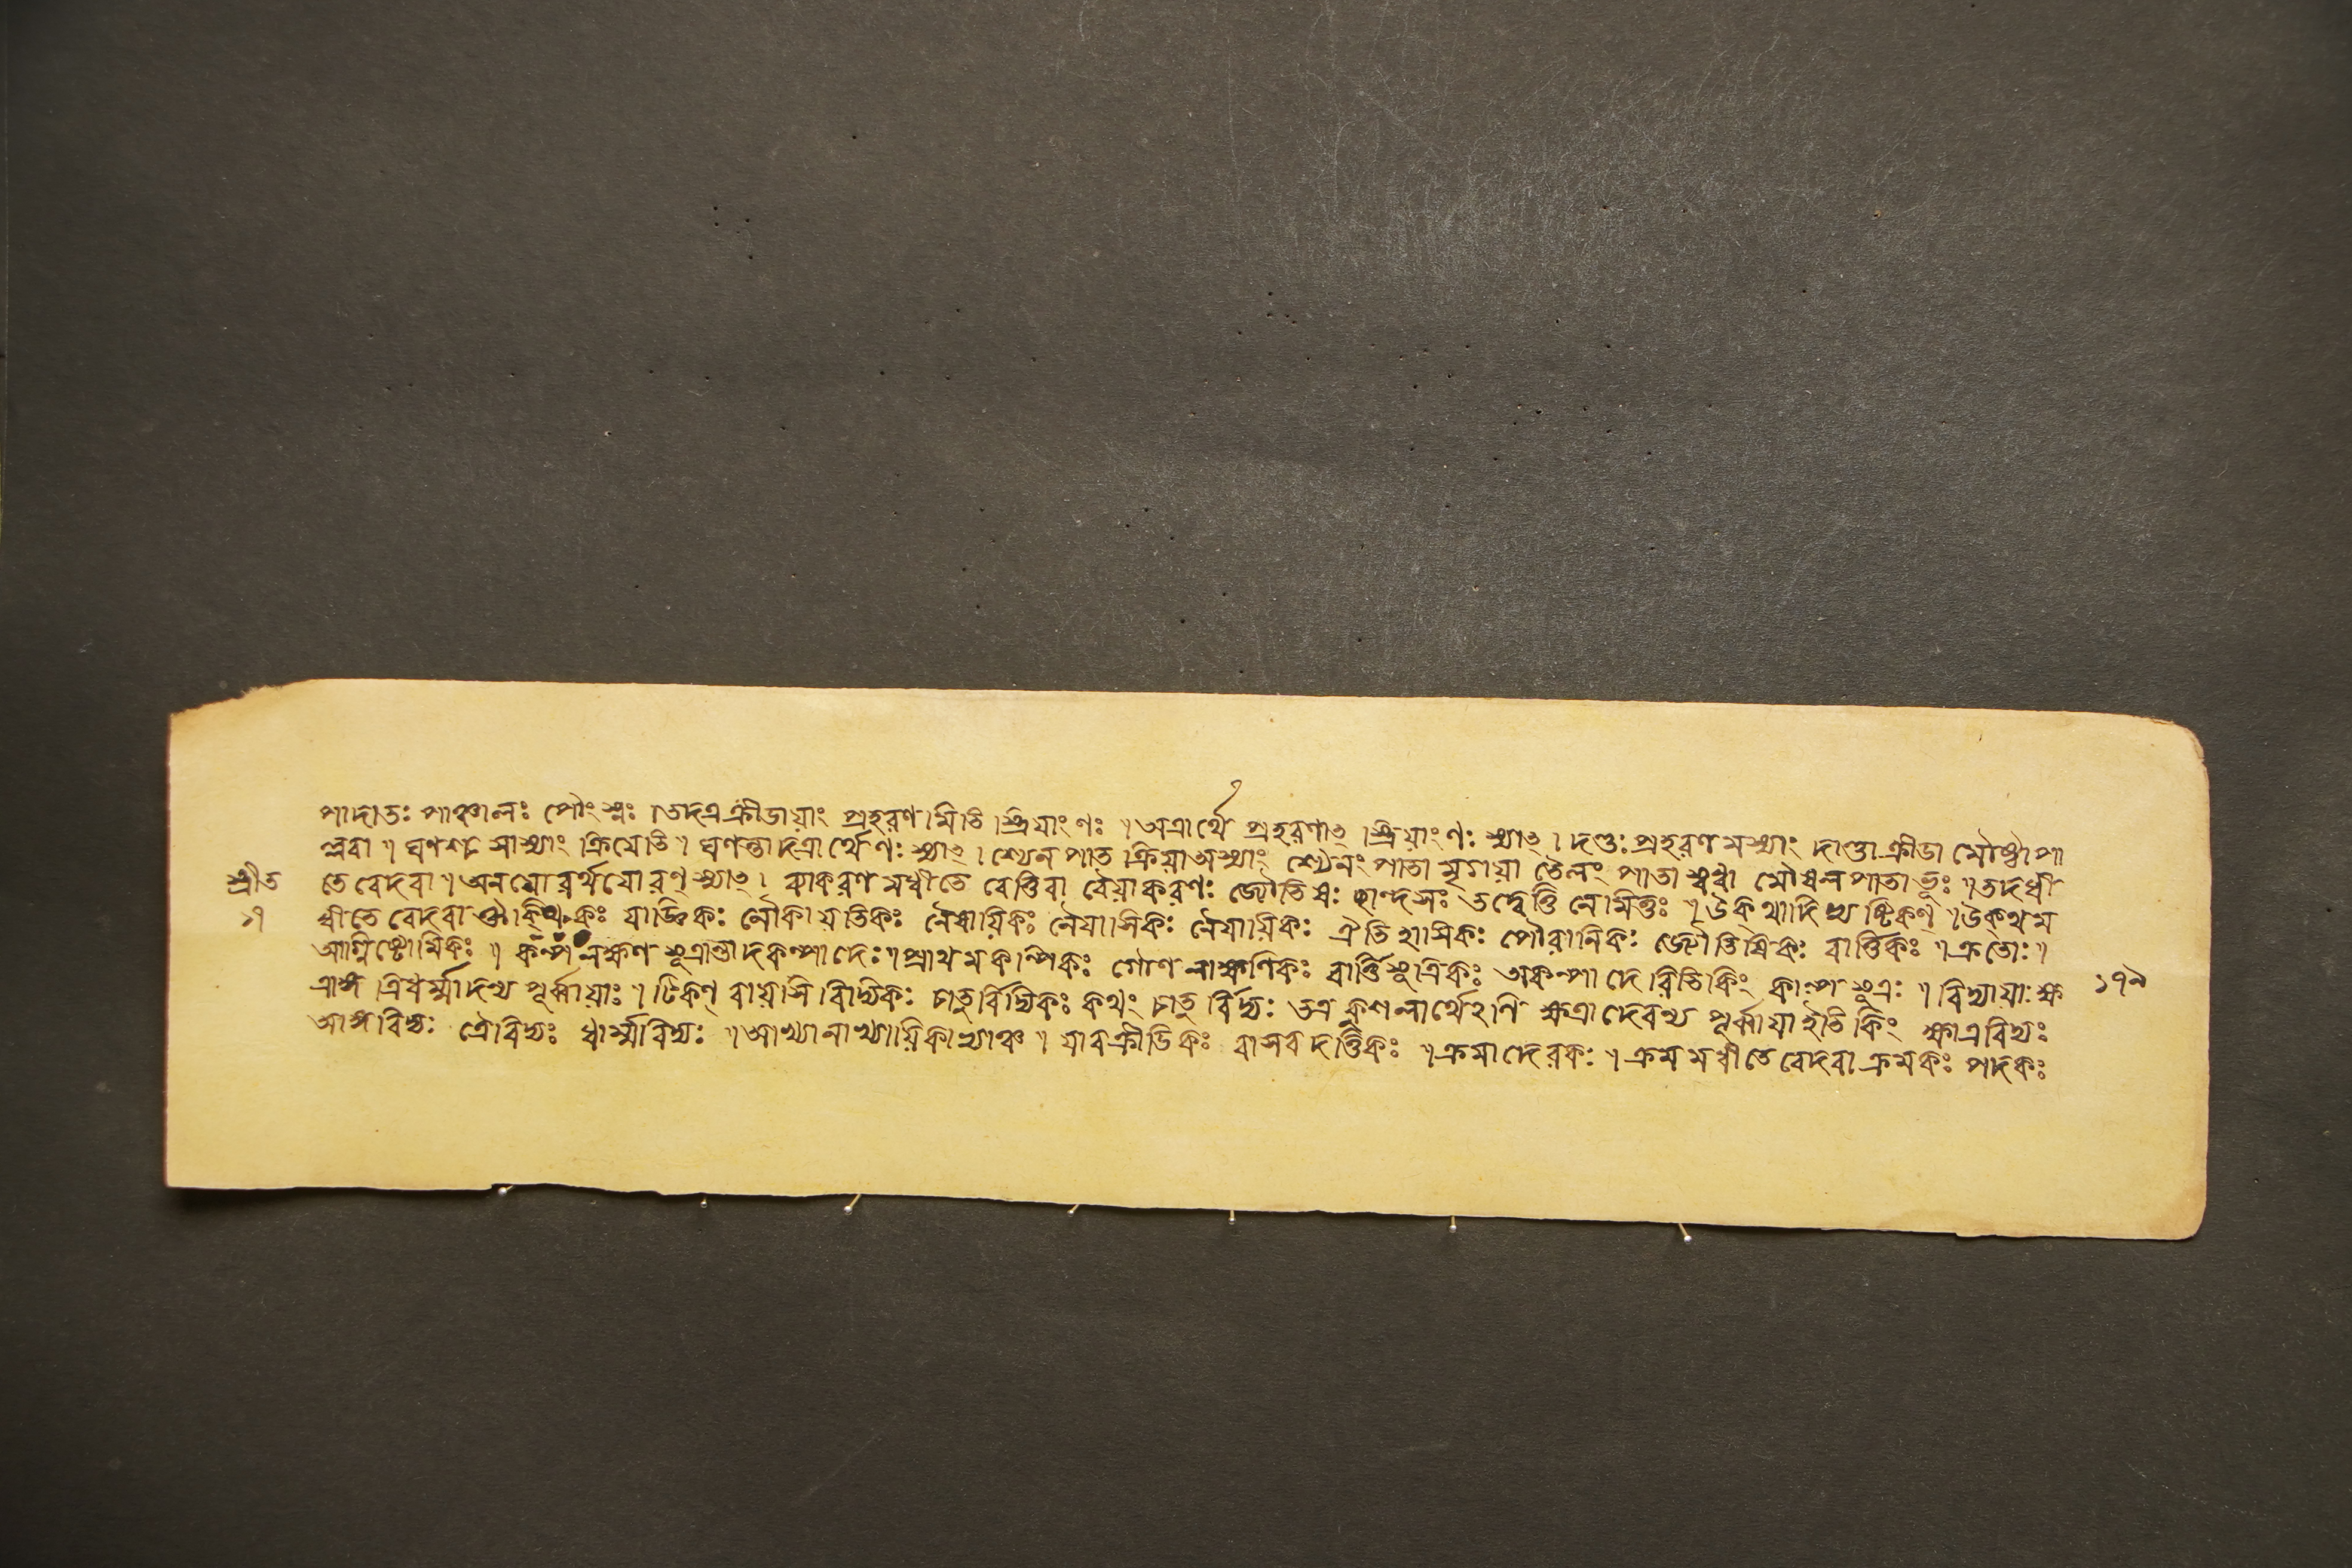 পাদাতঃ পাঞ্চালঃ পৌংস্নঃ ।তদত্রক্রীডায়াং প্রহরণমিতি স্ত্রিয়াংণঃ ॥অত্রার্থে প্রহরণাৎ স্ত্রিয়াংণঃ স্যাৎ। দণ্ডঃ প্রহরণমস্যাং দাণ্ডা ক্রীডা মৌষ্টা পা
ল্লবা ॥ ঘণশঃ সাস্যাং ক্রিযেতি ॥ ঘণন্তাদত্রার্থেণঃ স্যাৎ। শ্যেনপাত ক্রিয়াঅস্যাং শ্যৈনং পাতা মৃগয়া তৈলং পাতা স্বধা মৌষলপাতাভূঃ ॥তদধী
শ্রীত তে বেদবা ॥অনয়োরর্থযোরণ্ স্যাৎ। ব্যাকরণমধীতে বেত্তিবা বৈয়াকরণঃ জ্যৌতিষঃ ছান্দসঃ তদ্বেত্তি নৈমিত্তঃ ॥উক্‌থাদিভ্য ষ্টিকণ্ ॥উক্‌থম
১৭ ধীতে বেদবা ঔক্‌থিকঃ যাজ্ঞিকঃ লৌকায়তিকঃ নৈষায়িকঃ নৈয়াসিকঃ নৈয়ায়িকঃ ঐতিহাসিকঃ পৌরানিকঃ জ্যৌতিষিকঃ বার্ত্তিকঃ ॥ক্রতোঃ॥
আগ্নিষ্টোমিকঃ ॥ কল্পলক্ষণ সূত্রান্তাদকল্পাদেঃ॥প্রাথমকল্পিকঃ গৌণলাক্ষণিকঃ বার্ত্তিসূত্রিকঃ অকল্পাদেরিতিকিং কাল্পসূত্রঃ ॥ বিদ্যায়াঃক্ষ
ত্রাঙ্গ ত্রিধর্ম্মাদন্য পূর্ব্বায়াঃ ॥টিকণ্ বায়সিবিদ্যিকঃ চাতুর্বিদ্যিকঃ কথং চাতুর্বিদ্যঃ তত্রকুশলার্থেঽণি ক্ষত্রাদেরন্য পূর্ব্বায়াইতিকিং ক্ষাত্রবিদ্যঃ ১৭৯
আঙ্গবিদ্যঃ ত্রৈবিদ্যঃ ধার্ম্মবিদ্যঃ ॥আখ্যানাখ্যায়িকাভ্যাঞ্চ ॥ যাবক্রীতিকঃ বাসবদত্তিকঃ ॥ক্রমাদেরকঃ ॥ ক্রমমধীতে বেদবা ক্রমকঃ পদকঃ